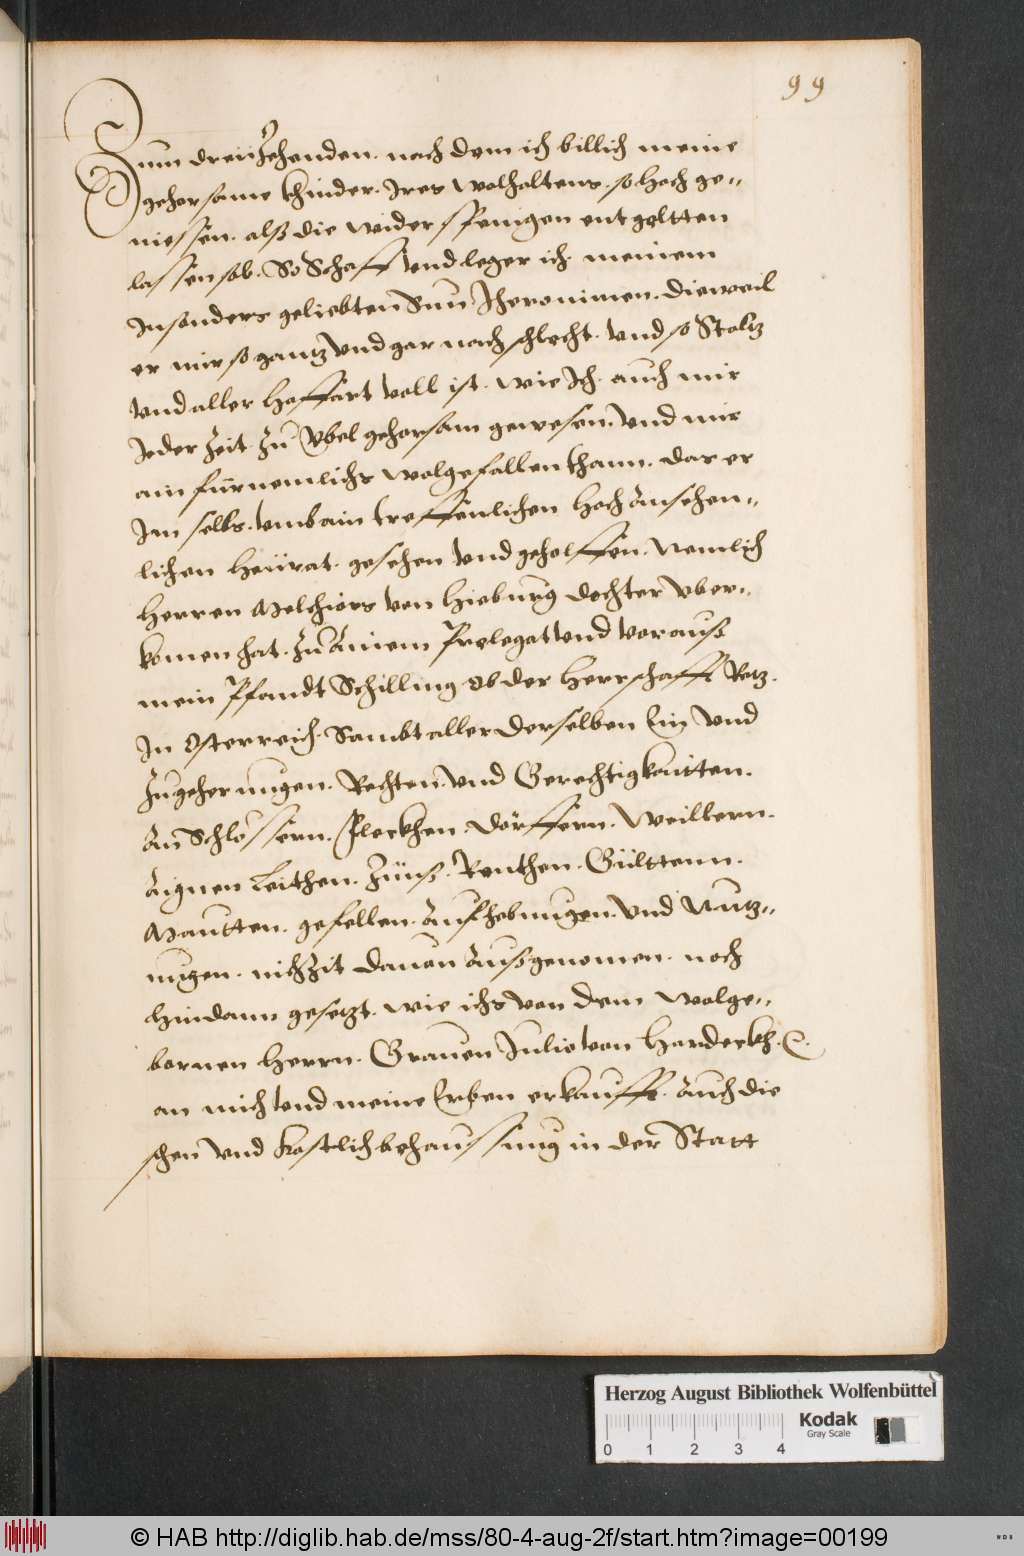 99
Zum dreüzehenden. nach dem ich billich meine
gehorsame khinder. Ires wolhaltens. so hoch ge-
niessen. alß die widerspenigen entgeltten
lassen sol. So Schaff vnd leger ich. meinem
Insonders geliebten Sun Jheronimen. dieweil
er mir so gantz vnd gar nach schlecht. vnd so Stoltz
vnd aller hoffart voll ist. wie Ich. auch mir
Jeder Zeit zu Vbel gehorsam gewesen. vnd mir
ain fürnemlichs wolgefallen thann. das er
Im selbs. vmb ain treffenlichen hoch Ansehen-
lichen heürat. gesehen vnd geholffen. Nemlich
herren Melchiors von hieburg dochter vber-
komen hat. zu Ainem Prelegat vnd vorauß
mein Pfandt Schilling ob der herrschafft Retz.
In Osterreich. Sambt aller derselben Ein vnd
zugehorungen. Rechten. vnd Gerechtigkaitten.
An Schlössern. Fleckhen. dörffern. Weillern.
Aignen Leithen. Zünß. Renthen. Gülttenn.
Mautten. gefellen. Aufhebungen. vnd Nutz-
ungen. nichzit dauon Außgenomen. noch
hindann gesetzt. wie ichs von dem wolge-
bornen herrn. Grauen Julio von Hardeckh. &.
an mich vnd meine Erben erkaufft. Auch die
schen vnd kostlich behaussung in der Statt
Herzog August Bibliothek Wolfenbüttel
Kodak
Gray Scale
0 1 2 3 4
© HAB http://diglib.hab.de/mss/80-4-aug-2f/start.htm?image=00199